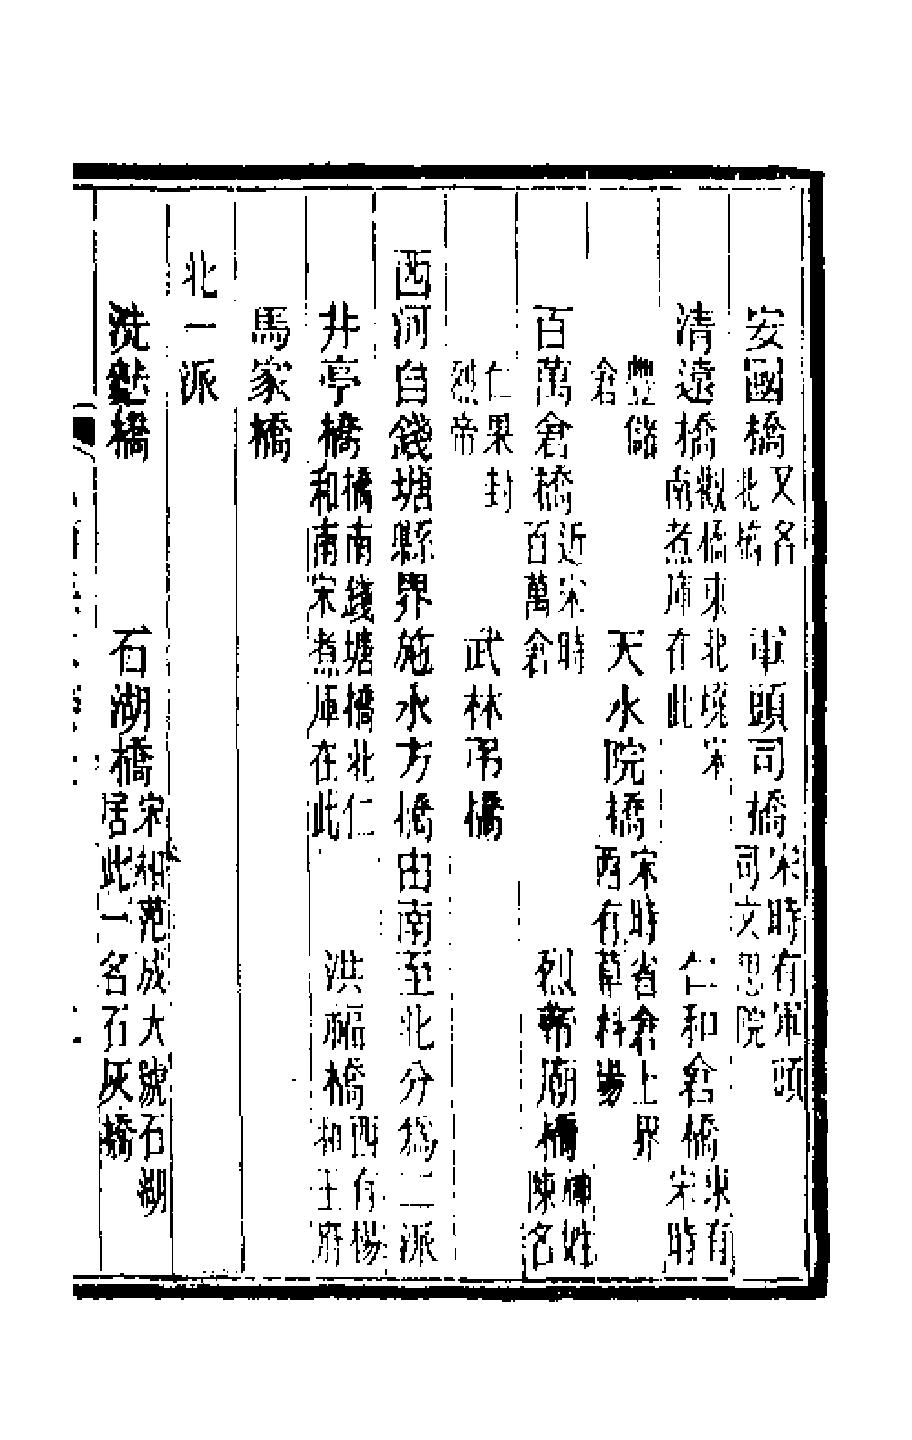 安國橋又名北橋　軍頭司橋宋時有軍頭司文思院
清遠橋觀橋東北境宋南煮庫在此　仁和倉橋東有宋時
豐儲倉　天水院橋宋時省倉上界西有草料場
百萬倉橋近宋時百萬倉　烈帝廟橋神姓陳名
仁果封烈帝　武林吊橋
西河自錢塘縣界施水方橋由南至北分爲二派
井亭橋橋南錢塘橋北仁和南宋煮庫在此　洪福橋西有楊和王府
馬家橋
北一派
洗麩橋　石湖橋宋相范成大號石湖居此一名石灰橋